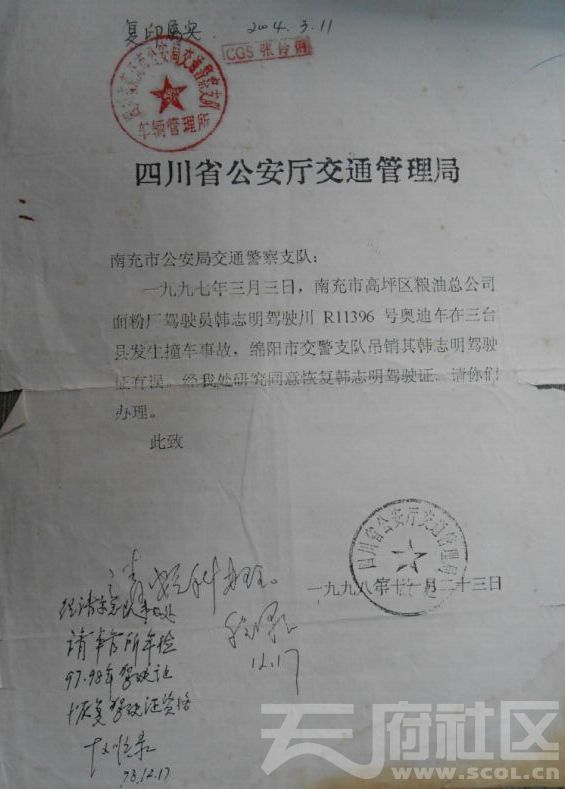 复印属实. 2004.3.11
CGS 张
车辆管理所
四川省公安厅交通管理局
南充市公安局交通警察支队：
一九九七年三月三日，南充市高坪区粮油总公司
面粉厂驾驶员韩志明驾驶川 R11396 号奥迪车在三台
县发生撞车事故，绵阳市交警支队吊销其韩志明驾驶
证有误。经我处研究同意恢复韩志明驾驶证。请你们
办理。
此致
四川省公安厅交通管理局
一九九八年十一月二十三日
办理。
12.17
请车管所年检
97.98年驾驶证
恢复驾驶证资格
98.12.17
天府社区
www.scol.cn